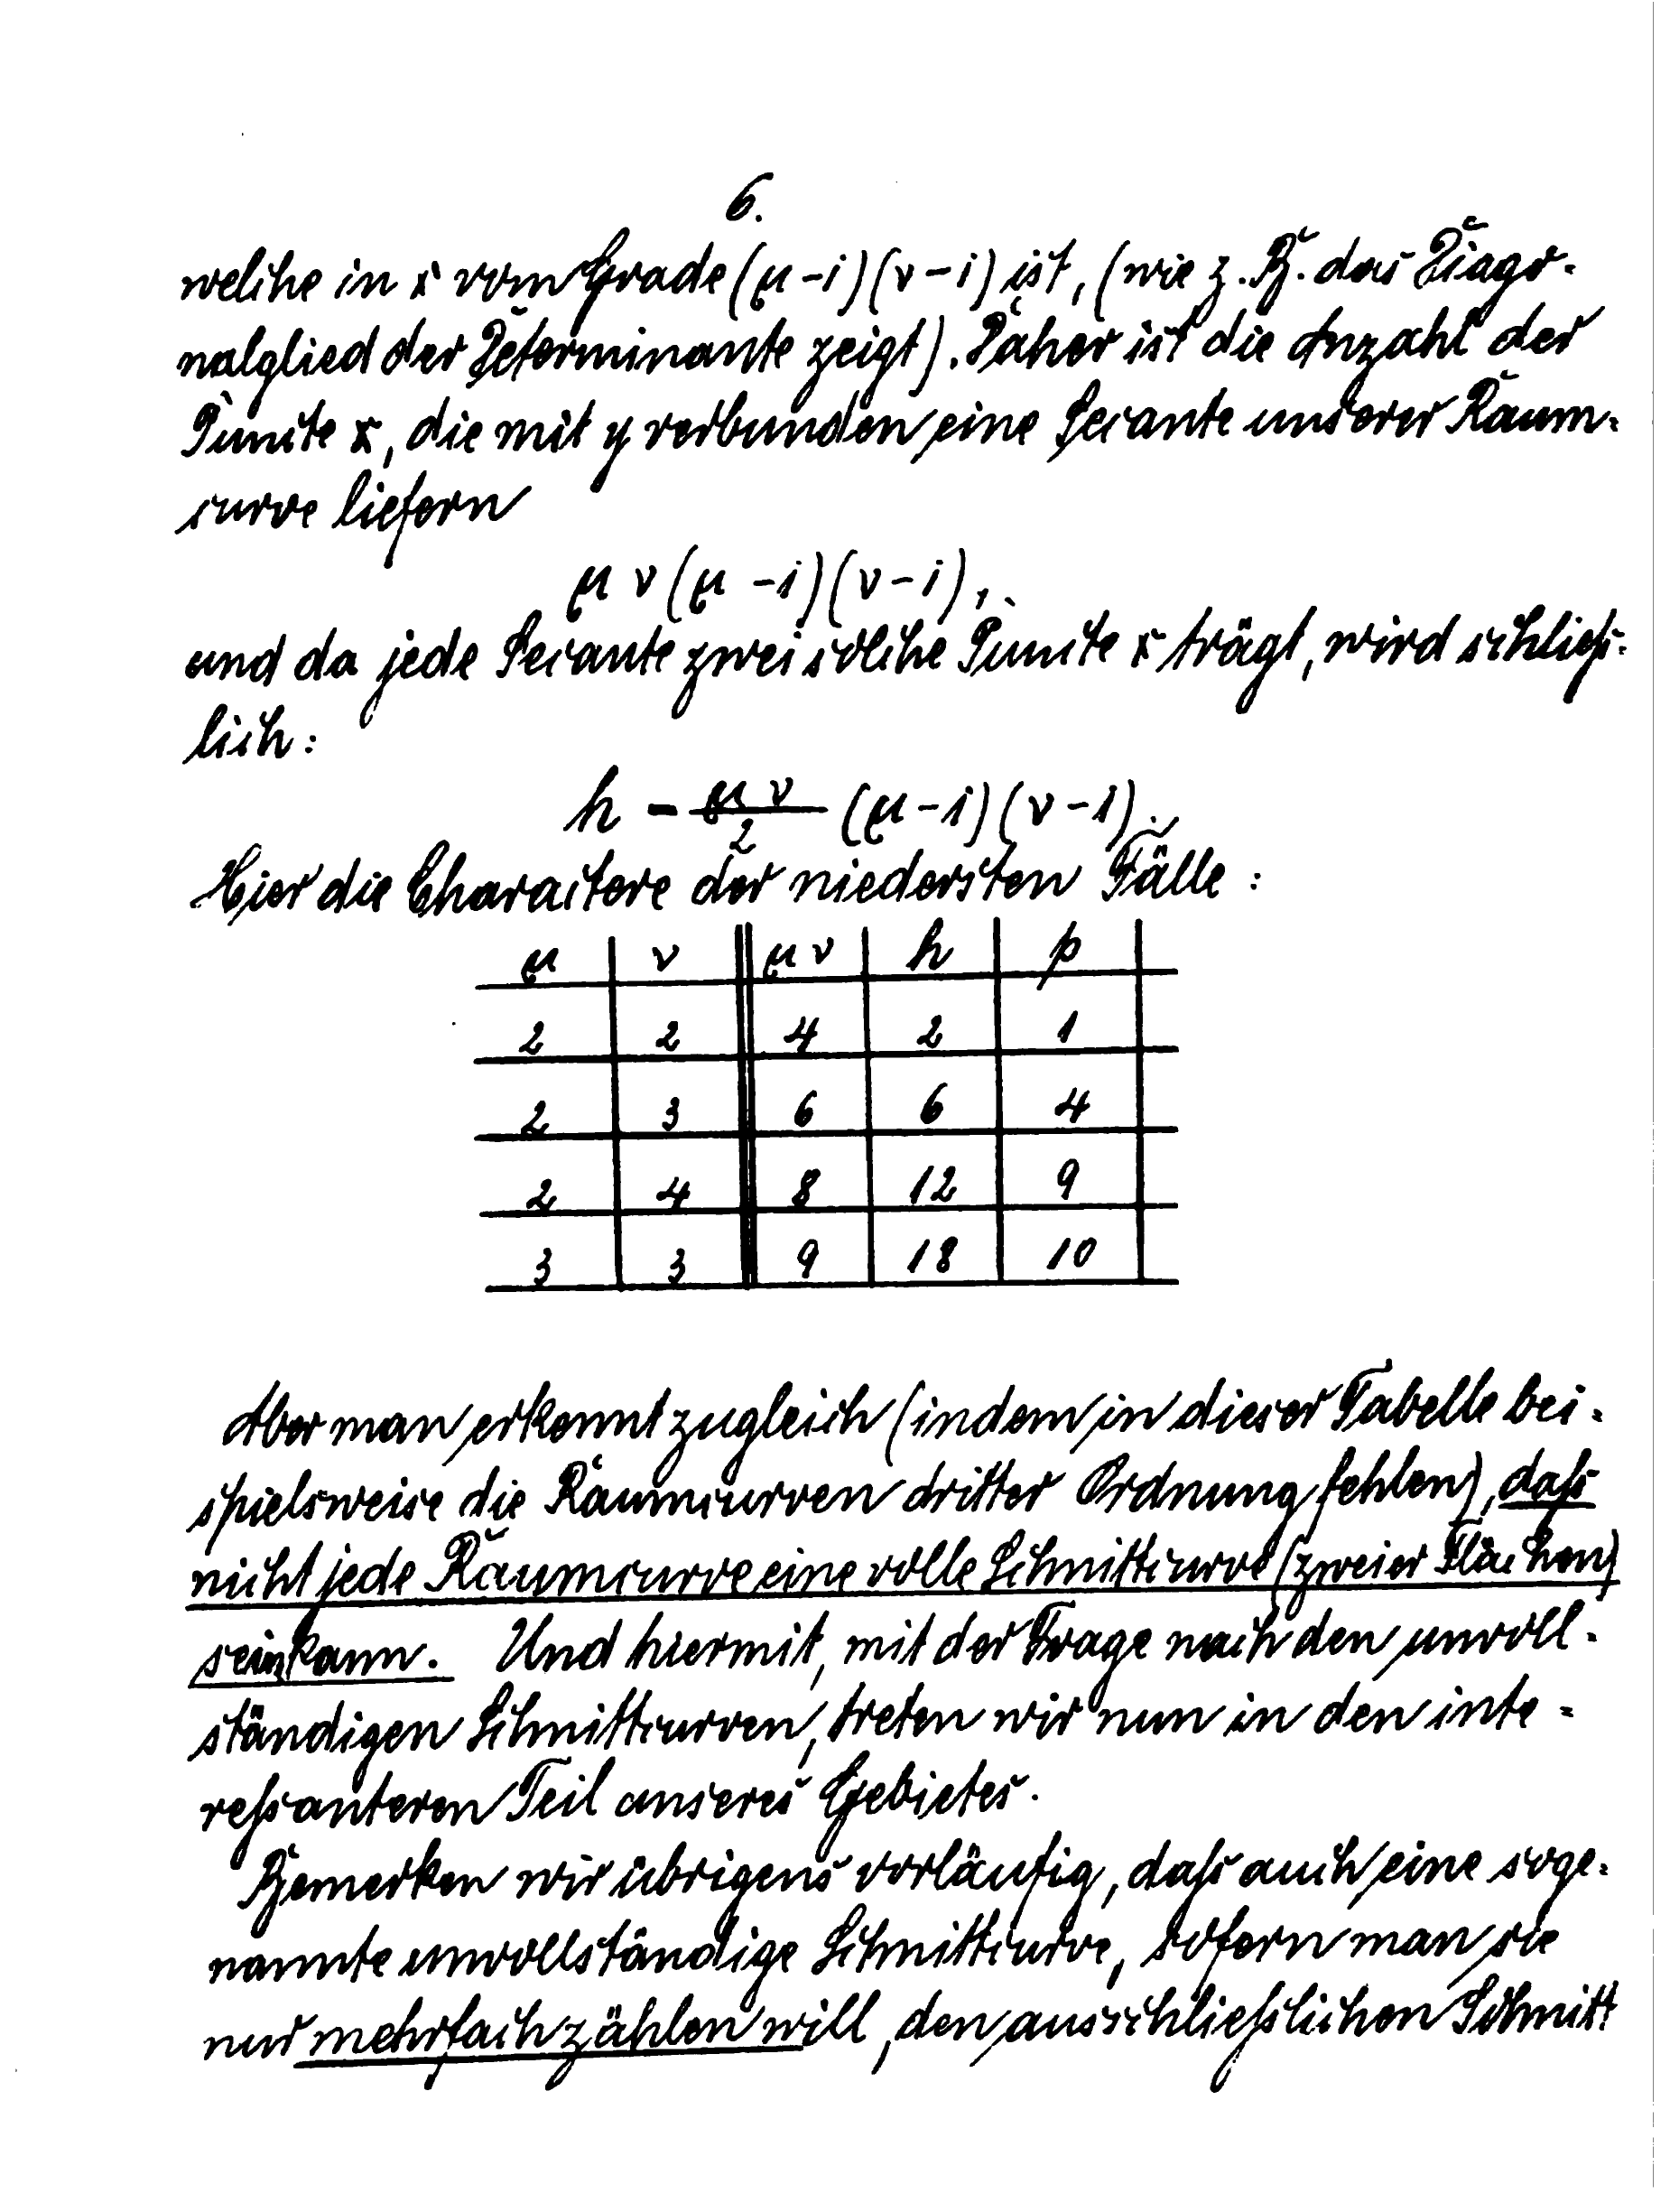 6.
welche in x vom Grade (μ-1)(ν-1) ist, (wie z. B. das Diago-
nalglied der Determinante zeigt). Daher ist die Anzahl der
Punkte x, die mit y verbunden eine Secante unserer Raum-
curve liefern
μ ν (μ-1)(ν-1),
und da jede Secante zwei solche Puncte x trägt, wird schließ-
lich:
h = μν/2 (μ-1)(ν-1).
Hier die Charactere der niedersten Fälle:
μ ν μν h p
2 2 4 2 1
2 3 6 6 4
2 4 8 12 9
3 3 9 18 10
Aber man erkennt zugleich (indem in dieser Tabelle bei-
spielsweise die Raumcurven dritter Ordnung fehlen), daß
nicht jede Raumcurve eine volle Schnittcurve (zweier Flächen)
sein kann. Und hiermit, mit der Frage nach den unvoll-
ständigen Schnittcurven, treten wir nun in den inte-
reßanteren Teil unseres Gebietes.
Bemerken wir übrigens vorläufig, daß auch eine soge-
nannte unvollständige Schnittcurve, sofern man sie
nur mehrfach zählen will, den ausschließlichen Schnitt